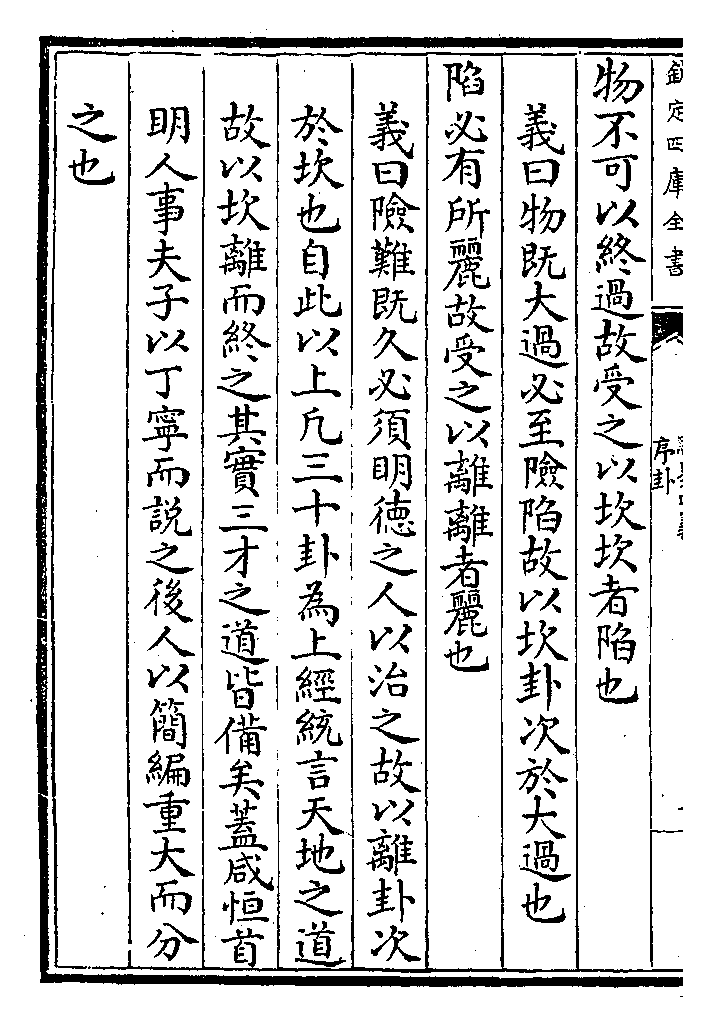 欽定四庫全書
序卦
物不可以終過故受之以坎坎者陷也
義曰物既大過必至險陷故以坎卦次於大過也
陷必有所麗故受之以離離者麗也
義曰險難既久必須明德之人以治之故以離卦次
於坎也自此以上凡三十卦為上經統言天地之道
故以坎離而終之其實三才之道皆備矣蓋咸恒首
明人事夫子以丁寧而説之後人以簡編重大而分
之也